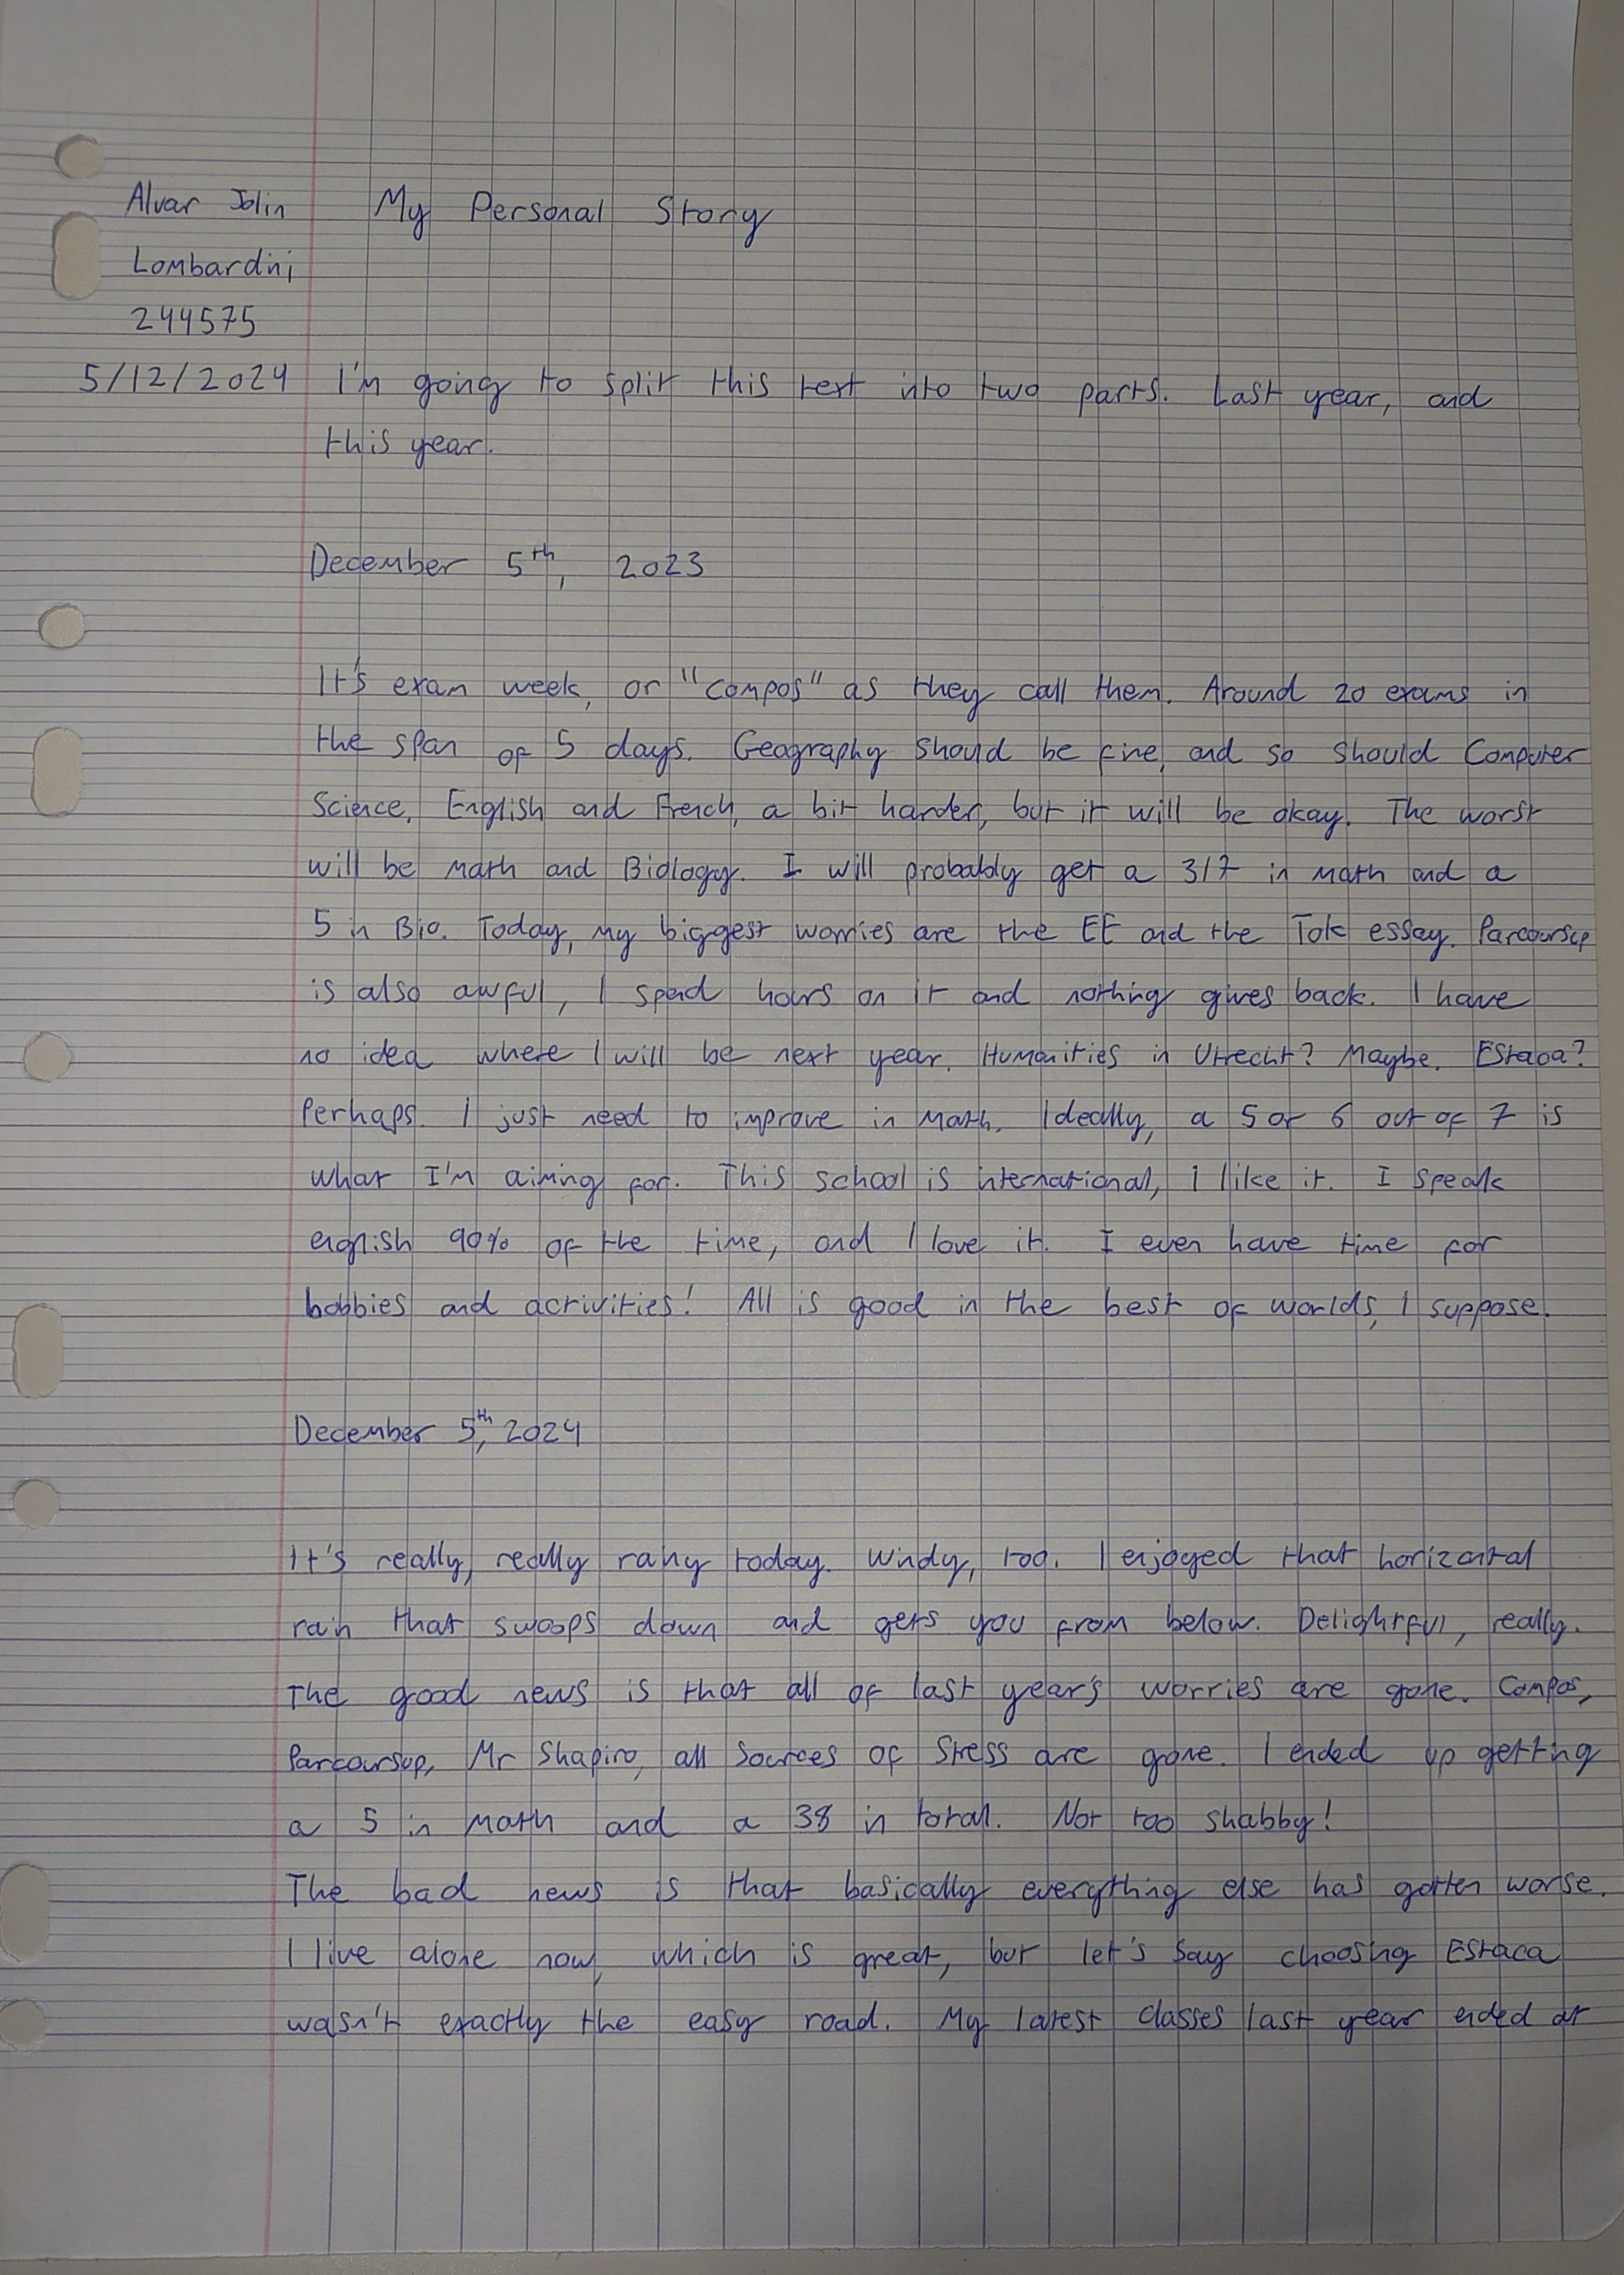 Alvar Jolin
My Personal Story
Lombardini
244575
5/12/2024
I'm going to split this text into two parts. Last year, and
this year.
December 5th, 2023
It's exam week, or "compos" as they call them. Around 20 exams in
the span of 5 days. Geography should be fine, and so should Computer
Science. English and French, a bit harder, but it will be okay. The worst
will be math and Biology. I will probably get a 3/7 in math and a
5 in Bio. Today, my biggest worries are the EE and the Tok essay. Parcoursup
is also awful, I spend hours on it and nothing gives back. I have
no idea where I will be next year. Humanities in Utrecht? Maybe. Estaca?
Perhaps. I just need to improve in math. Ideally, a 5 or 6 out of 7 is
what I'm aiming for. This school is international, I like it. I speak
english 90% of the time, and I love it. I even have time for
hobbies and activities! All is good in the best of worlds, I suppose.
December 5th, 2024
It's really, really rainy today. Windy, too. I enjoyed that horizontal
rain that swoops down and gets you from below. Delightful, really.
The good news is that all of last year's worries are gone. Compos,
Parcoursup, Mr Shapiro, all sources of stress are gone. I ended up getting
a 5 in math and a 38 in total. Not too shabby!
The bad news is that basically everything else has gotten worse.
I live alone now, which is great, but let's say choosing Estaca
wasn't exactly the easy road. My latest classes last year ended at